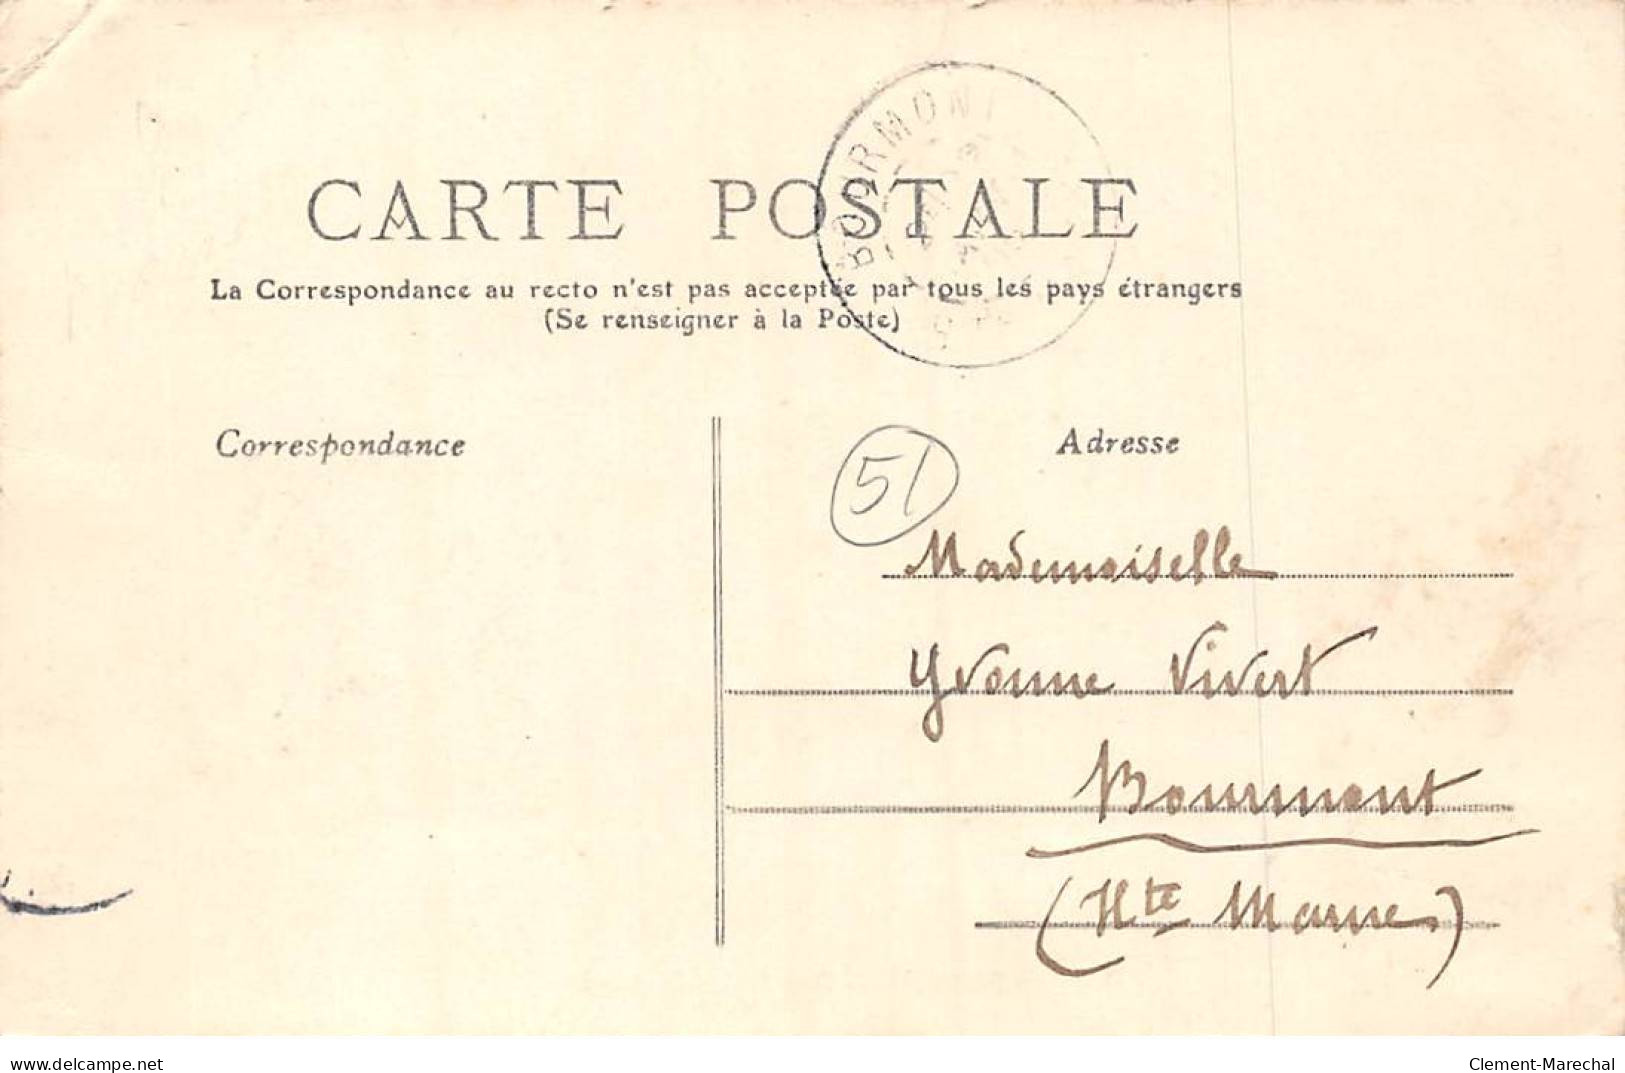 BOURMONT
CARTE POSTALE
La Correspondance au recto n'est pas acceptée par tous les pays étrangers
(Se renseigner à la Poste)
Correspondance
Adresse
51
Mademoiselle
Yvonne Vivert
Bourmont
(Hte Marne)
www.delcampe.net
Clement-Marechal